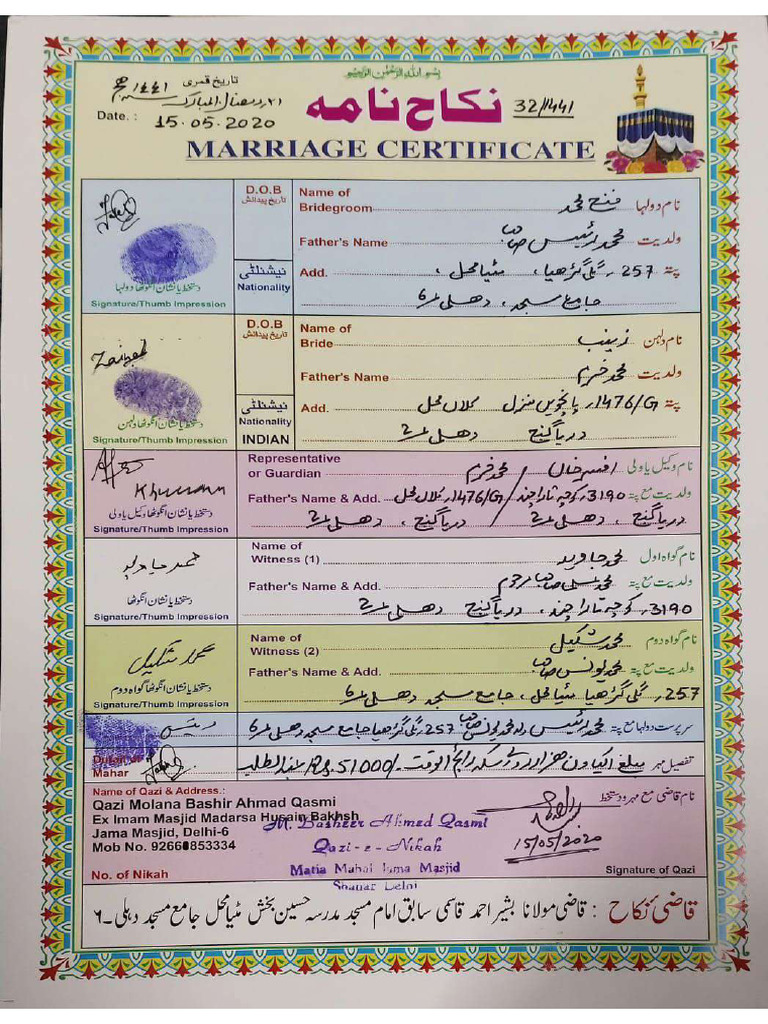 بسم اللہ الرحمن الرحیم
تاریخ قمری
۲۱ رمضان المبارک ۱۴۴۱ھ
نکاح نامہ
32/1441
Date. : 15.05.2020
MARRIAGE CERTIFICATE
D.O.B
تاریخ پیدائش
Name of
Bridegroom
نام دولہا
Father's Name محمد رئیس صاحب ولدیت
نیشنلٹی
Nationality
Add. 257، گلی گڑھیا، مٹیا محل، پتہ
جامع مسجد، دھلی ۶
دستخط یا نشان انگوٹھا دولہا
Signature/Thumb Impression
D.O.B
تاریخ پیدائش
Name of
Bride زینب نام دلہن
Zainab
Father's Name محمد خرم ولدیت
نیشنلٹی
Nationality
INDIAN
Add. 1476/G، پانچویں منزل کلاں محل پتہ
دریا گنج دھلی ۲
دستخط یا نشان انگوٹھا دلہن
Signature/Thumb Impression
Representative
or Guardian افسر خان / محمد خرم نام وکیل یا ولی
Khurram
Father's Name & Add. 3190، کوچہ تارا چند / 1476/G، کلاں محل ولدیت مع پتہ
دریا گنج، دھلی ۲ / دریا گنج، دھلی ۲
دستخط یا نشان انگوٹھا وکیل یا ولی
Signature/Thumb Impression
Name of
Witness (1) محمد جاوید نام گواہ اول
محمد جاوید
Father's Name & Add. صاحب مرحوم ولدیت مع پتہ
3190، کوچہ تارا چند، دریا گنج دھلی ۲
دستخط یا نشان انگوٹھا
Signature/Thumb Impression
Name of
Witness (2) محمد شکیل نام گواہ دوم
محمد شکیل
Father's Name & Add. محمد یونس صاحب ولدیت مع پتہ
257، گلی گڑھیا، مٹیا محل، جامع مسجد دھلی ۶
دستخط یا نشان انگوٹھا گواہ دوم
Signature/Thumb Impression
سرپرست دولہا مع پتہ محمد رئیس ولد محمد یونس صاحب 257، گلی گڑھیا جامع مسجد دھلی ۶
Mahar
تفصیل مہر مبلغ اکیاون ھزار روپے سکہ رائج الوقت Rs. 51000/- عندالطلب
Name of Qazi & Address.:
نام قاضی مع مہر و دستخط
Qazi Molana Bashir Ahmad Qasmi
Ex Imam Masjid Madarsa Husain Bakhsh
Jama Masjid, Delhi-6
Mob No. 9266853334
M. Basheer Ahmed Qasmi
Qazi-e-Nikah
Matia Mahal Jama Masjid
15/05/2020
No. of Nikah
Signature of Qazi
قاضی نکاح : قاضی مولانا بشیر احمد قاسمی سابق امام مسجد مدرسہ حسین بخش مٹیا محل جامع مسجد دہلی۔۶